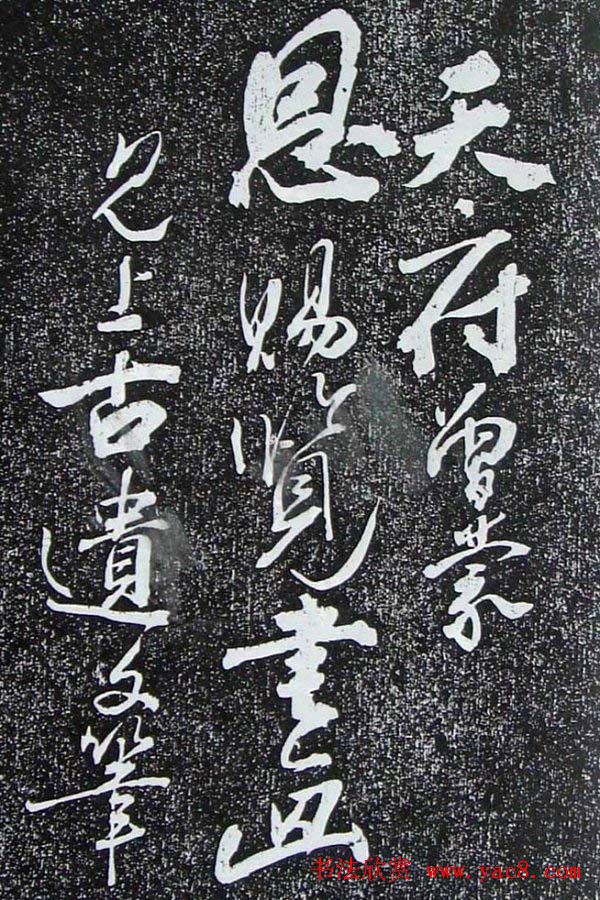 天府曾蒙
恩賜覽書画
見上古遺文筆
书法欣赏 www.yac8.com